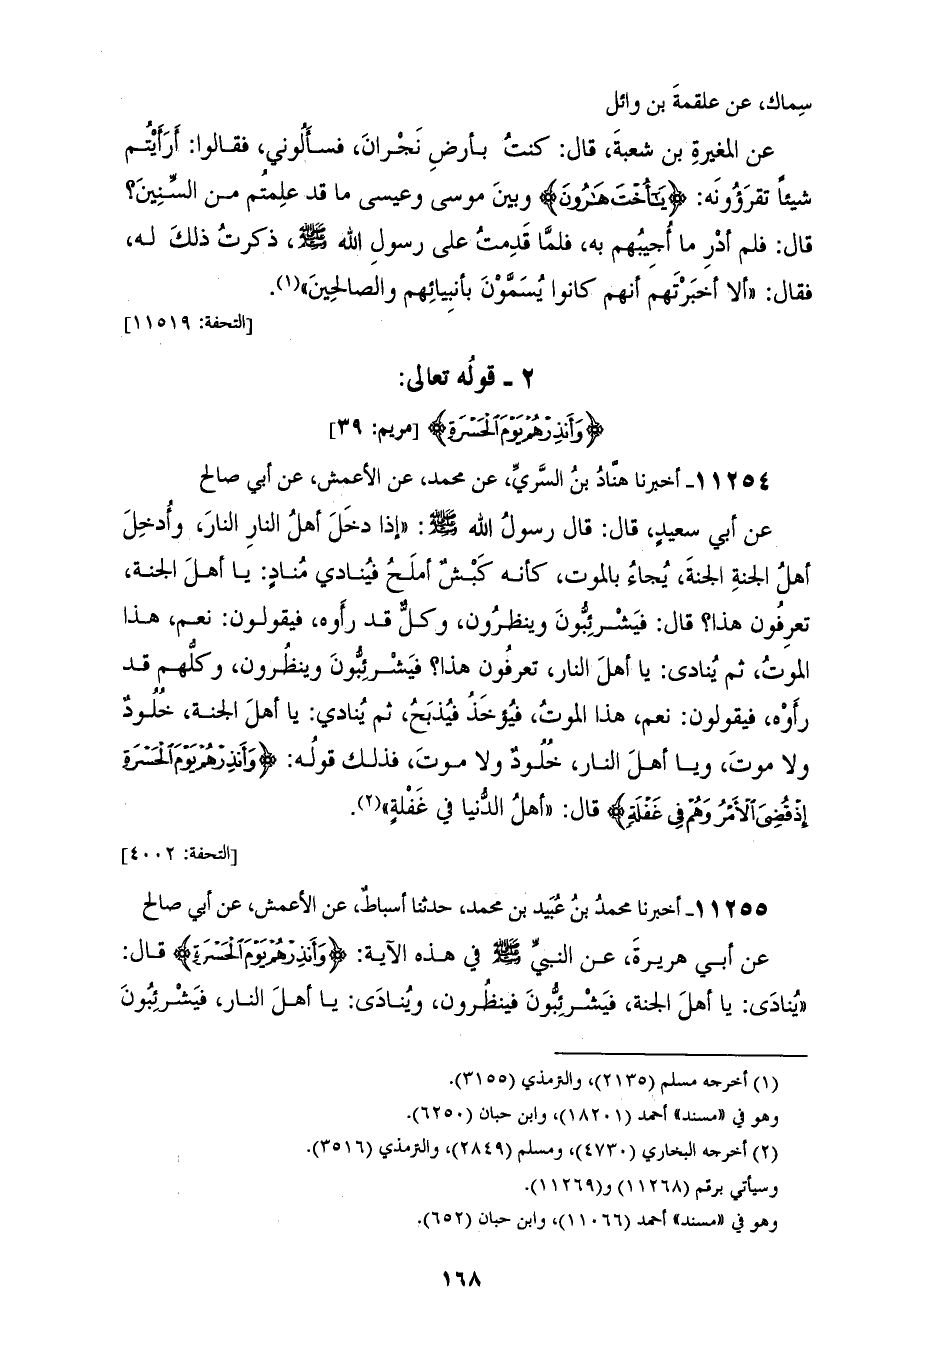 سِماك، عن علقمةَ بن وائل
عن المغيرةِ بن شعبةَ، قال: كنتُ بأرضِ نَجْرانَ، فسأَلُوني، فقالوا: أَرَأَيْتُم
شيئاً تقرَؤُونَه: ﴿يَٰٓأُخْتَ هَٰرُونَ﴾ وبينَ موسى وعيسى ما قد علِمتُم من السِّنِينَ؟
قال: فلم أَدْرِ ما أُجيبُهم به، فلمَّا قَدِمتُ على رسولِ الله ﷺ، ذكرتُ ذلكَ له،
فقال: «ألا أخبَرْتَهم أنهم كانوا يُسَمَّوْنَ بأنبيائِهم والصالحِينَ»(١).
[التحفة: ١١٥١٩]
٢ ـ قولُه تعالى:
﴿وَأَنذِرْهُمْ يَوْمَ ٱلْحَسْرَةِ﴾ [مريم: ٣٩]
١١٢٥٤ـ أخبرنا هنَّادُ بنُ السَّريِّ، عن محمد، عن الأعمش، عن أبي صالح
عن أبي سعيدٍ، قال: قال رسولُ الله ﷺ: «إذا دخَلَ أهلُ النارِ النارَ، وأُدخِلَ
أهلُ الجنةِ الجنةَ، يُجاءُ بالموت، كأنه كَبْشٌ أملَحُ فيُنادي مُنادٍ: يا أهلَ الجنة،
تعرِفُون هذا؟ قال: فيَشْرئِبُّونَ وينظرُون، وكلٌّ قد رأَوه، فيقولون: نعم، هذا
الموتُ، ثم يُنادى: يا أهلَ النار، تعرفُون هذا؟ فيَشْرئِبُّونَ وينظُرون، وكلُّهم قد
رأَوْه، فيقولون: نعم، هذا الموتُ، فيُؤخَذُ فيُذبَحُ، ثم يُنادي: يا أهلَ الجنة، خُلُودٌ
ولا موتَ، ويا أهلَ النار، خُلُودٌ ولا موتَ، فذلك قولُه: ﴿وَأَنذِرْهُمْ يَوْمَ ٱلْحَسْرَةِ
إِذْ قُضِىَ ٱلْأَمْرُ وَهُمْ فِى غَفْلَةٍ﴾ قال: «أهلُ الدُّنيا في غَفْلةٍ»(٢).
[التحفة: ٤٠٠٢]
١١٢٥٥ـ أخبرنا محمدُ بنُ عُبَيد بن محمد، حدثنا أسباطٌ، عن الأعمش، عن أبي صالح
عن أبي هريرةَ، عن النبيِّ ﷺ في هذه الآية: ﴿وَأَنذِرْهُمْ يَوْمَ ٱلْحَسْرَةِ﴾ قال:
«يُنادَى: يا أهلَ الجنة، فيَشْرئِبُّونَ فينظُرون، ويُنادَى: يا أهلَ النار، فيَشْرئِبُّونَ
(١) أخرجه مسلم (٢١٣٥)، والترمذي (٣١٥٥).
وهو في «مسند» أحمد (١٨٢٠١)، وابن حبان (٦٢٥٠).
(٢) أخرجه البخاري (٤٧٣٠)، ومسلم (٢٨٤٩)، والترمذي (٣٥١٦).
وسيأتي برقم (١١٢٦٨) و(١١٢٦٩).
وهو في «مسند» أحمد (١١٠٦٦)، وابن حبان (٦٥٢).
١٦٨